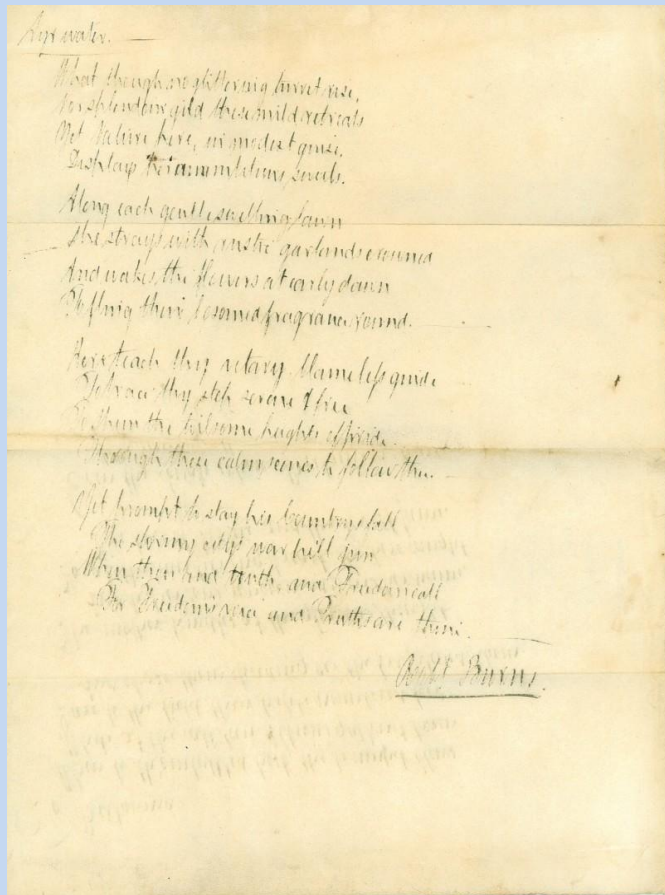 Ayr water.
What though no glittering turret rise,
Nor splendour gild these mild retreats
Yet Nature here, in modest guise,
Displays her unambitious sweets.
Along each gentle swelling lawn
She strays with rustic garlands crowned
And wakes the flowers at early dawn
To fling their bosomed fragrance round.
Here teach thy votary blameless guide
To trace thy step serene & free
To shun the toilsome heights of pride
Through these calm scenes to follow thee.
Yet prompt to stay his Country's fall
The stormy city's war he'll join
When thou and truth and Freedom call
For Freedom's voice and Truth's are thine.
Robt Burns.